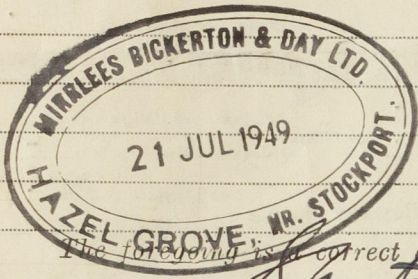 MIRRLEES BICKERTON & DAY LTD.
21 JUL 1949
HAZEL GROVE, NR. STOCKPORT.
The foregoing is a correct